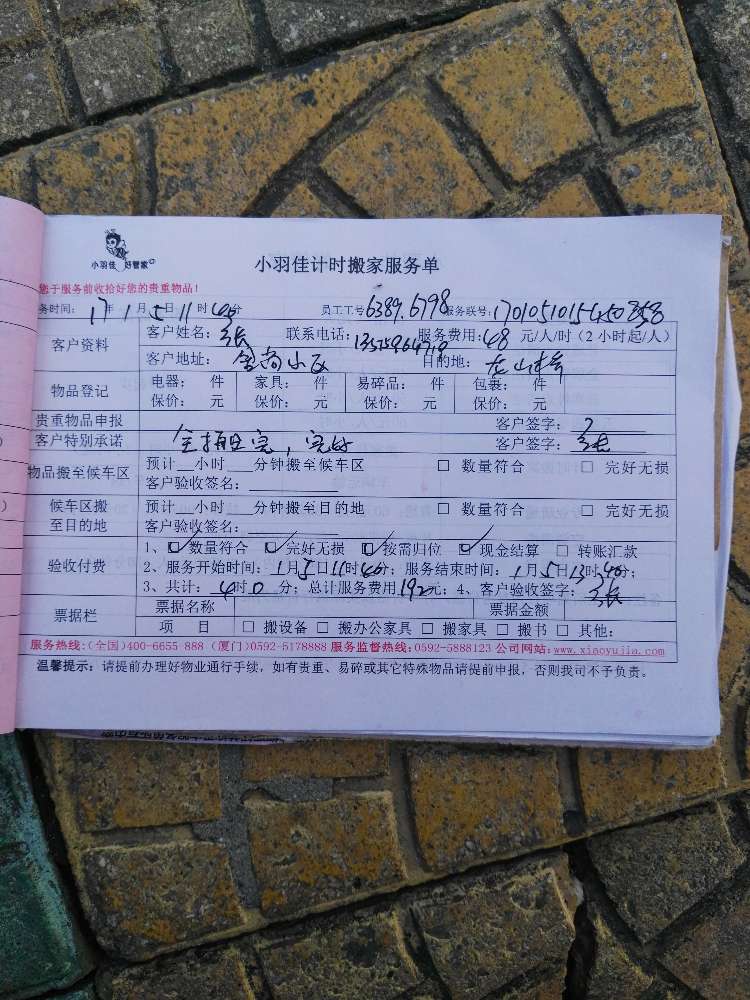 小羽佳 好管家
小羽佳计时搬家服务单
您于服务前收拾好您的贵重物品！
务时间: 17年1月5日11时40分 员工工号6389.6798 服务联号:
客户资料 客户姓名: 张 联系电话: 服务费用:48元/人/时（2小时起/人）
客户地址: 金尚小区 目的地: 龙山
物品登记 电器: 件 家具: 件 易碎品: 件 包裹: 件
保价: 元 保价: 元 保价: 元 保价: 元
贵重物品申报 客户签字:
客户特别承诺 完好 客户签字: 张
物品搬至候车区 预计__小时___分钟搬至候车区 □ 数量符合 □ 完好无损
客户验收签名:
候车区搬至目的地 预计__小时___分钟搬至目的地 □ 数量符合 □ 完好无损
客户验收签名:
验收付费 1、☑数量符合 ☑完好无损 ☑按需归位 ☑现金结算 □ 转账汇款
2、服务开始时间: 1月5日11时40分; 服务结束时间: 1月5日13时40分;
3、共计: 4时0分; 总计服务费用192元; 4、客户验收签字: 张
票据栏 票据名称 票据金额
项 目 □ 搬设备 □ 搬办公家具 □ 搬家具 □ 搬书 □ 其他:
服务热线:(全国)400-6655 888 (厦门)0592-5178888 服务监督热线:0592-5888123 公司网站:www.xiaoyujia.com
温馨提示: 请提前办理好物业通行手续，如有贵重、易碎或其它特殊物品请提前申报，否则我司不予负责。